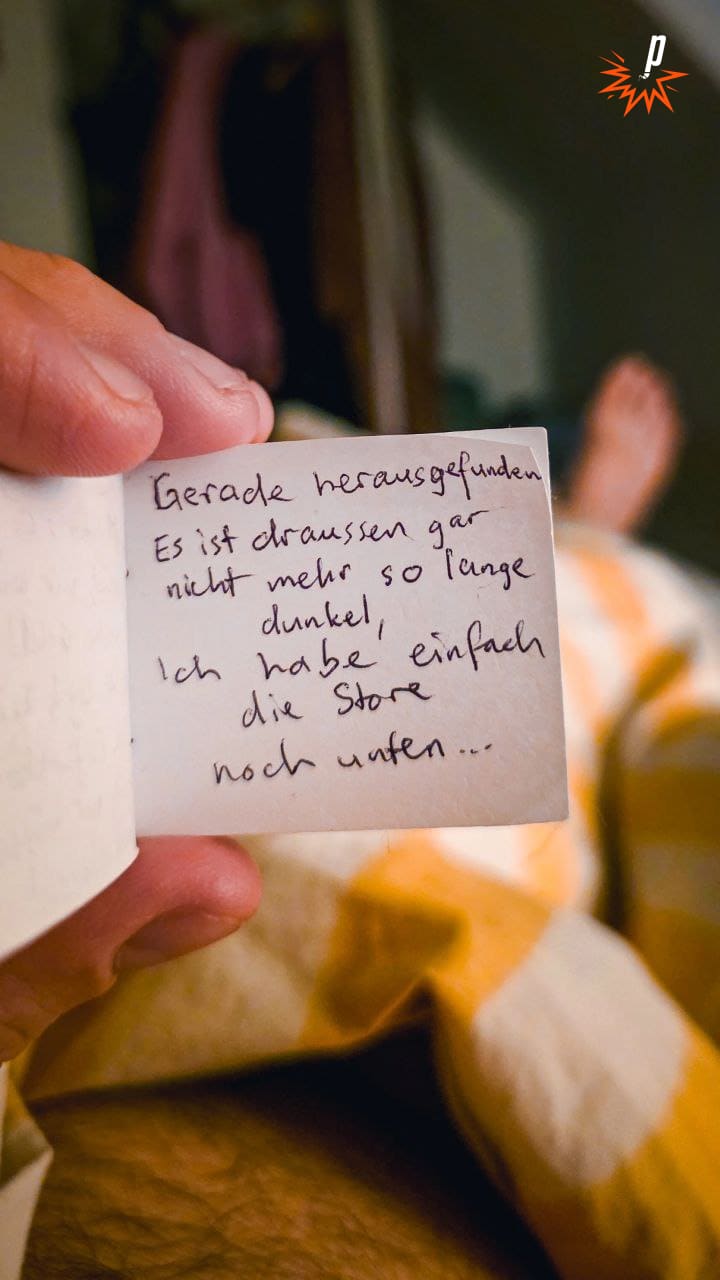 p
Gerade herausgefunden
Es ist draussen gar
nicht mehr so lange
dunkel,
Ich habe einfach
die Store
noch unten...